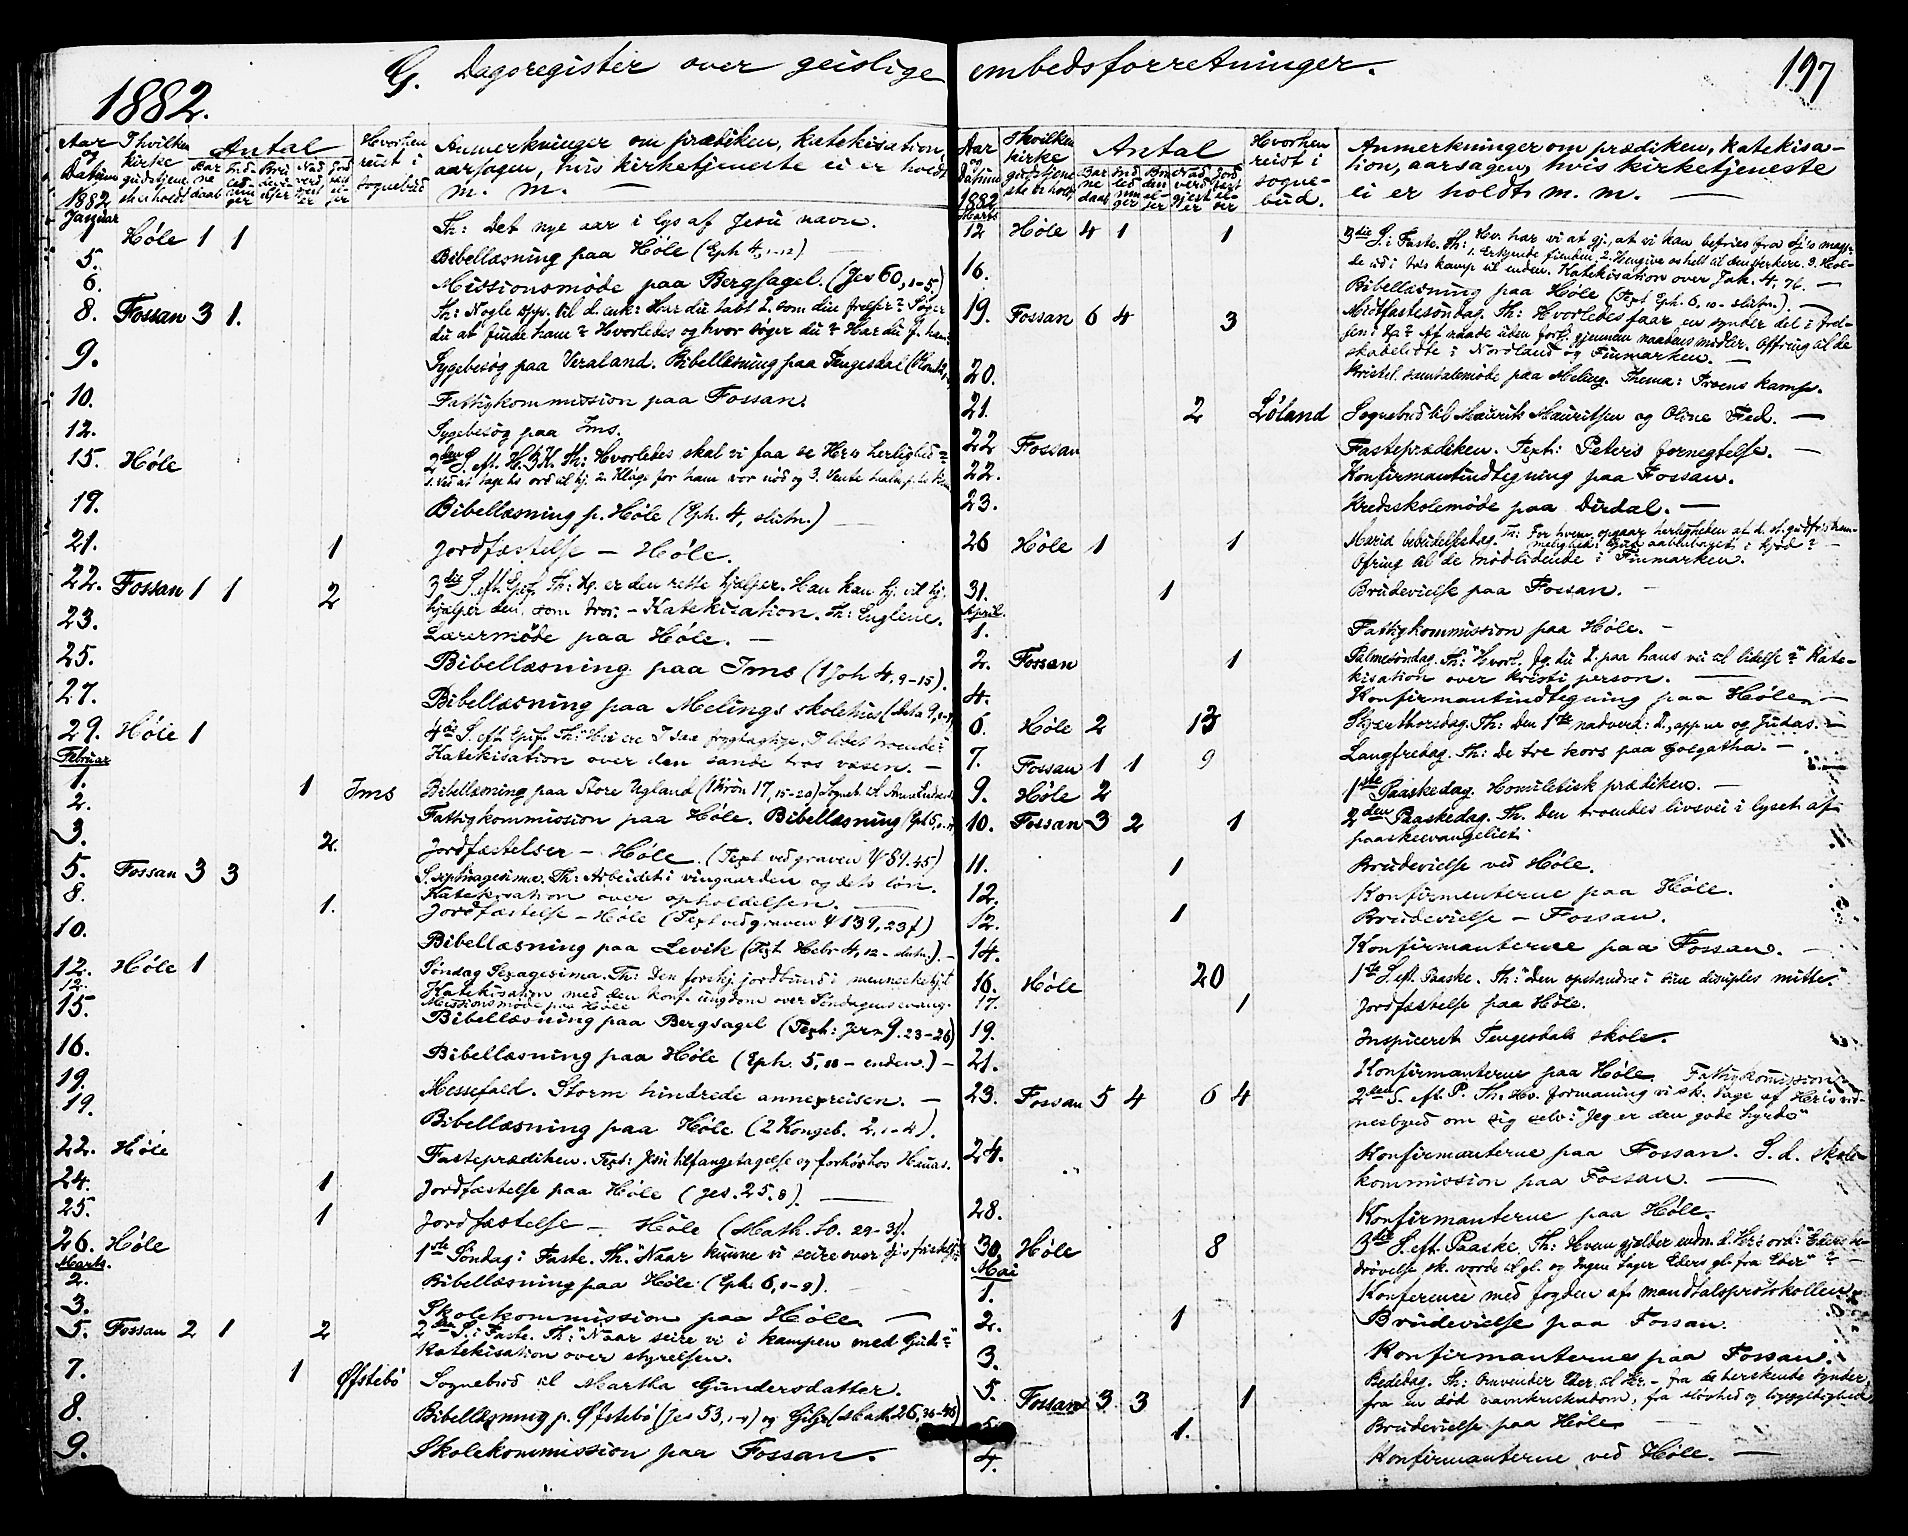 G. Dagsregister over geislige embedsforretninger.
197
1882.
Aar og Datum 1882 Januar
I hvilken kirke gudstjeneste er holdt
Antal
Hvorhen reist i sognebud
Anmerkninger om prædiken, katekisation,
aarsagen, hvis kirketjeneste ei er holdt
m. m. —
1 Høle 1 1 Th: Det nye aar i lys af Jesu navn.
5. Bibellæsning paa Høle (Eph 4, 1-12)
6. Missionsmøde paa Bergsagel. (Jes 60, 1-5,)
8. Fossan 3 1. Th: Nogle spp. til d. enk: Har du tabt J. som din frelser? Søger
du at finde ham? Hvorledes og hvor søger du? Har du f. ham
9. Sygebesøg paa Veraland. Bibellæsning paa Tengesdal
10. Fattigkommission paa Fossan.
12. Sygebesøg paa Ims.
15. Høle 2den S. eft. H.3K. Th: Hvorledes skal vi faa se Hrs herlighed?
19. Bibellæsning p. Høle (Eph. 4, slutn.)
21. 1 Jordfæstelse — Høle.
22. Fossan 1 1 2 3die S. eft. Epif. Th: er den rette hjælper. Han kan hj. vil hj.
hjælper den, som tror. — Katekisation. Th: Englene.
23. Lærermøde paa Høle. —
25. Bibellæsning paa Ims (1 Joh 4, 9-15).
27. Bibellæsning paa Melings skolehus
29. Høle 1 4de S. eft. Epif. Th: "Hvi ere I saa frygtagtige, I lidet troende?"
Katekisation over den sande tros væsen. —
Februar
1. 1 Ims Bibellæsning paa Store Ugland (1 Krøn 17, 15-20)
2. Fattigkommission paa Høle. Bibellæsning
3. 2. Jordfæstelser — Høle. (Text ved graven
5. Fossan 3 3 S. septuagesima. Th: Arbeidet i vingaarden og dets løn.
Katekisation over opholdelsen.
8. 1. Jordfæstelse — Høle (Text ved graven ψ 139, 23 f)
10. Bibellæsning paa Levik (Text Hebr 4, 12 - slutn.). —
12. Høle 1 Søndag Sexagesima. Th: Den forskj. jordbund i menneskehjt
12. Katekisation med den konf. ungdom over Søndagens evang.
Missionsmøde paa Høle
15. Bibellæsning paa Bergsagel (Text: Jer. 9. 23-26)
16. Bibellæsning paa Høle (Eph. 5, - enden.) —
19. Messefald. Storm hindrede annexreisen. —
19. Bibellæsning paa Høle (2 Kongeb. 2, 1-4).
22. Høle Fasteprædiken. Text: Jesu tilfangetagelse og forhør hos Hanas.
24. 1 Jordfæstelse paa Høle (Jes. 25. 8). —
25. 1 Jordfæstelse — Høle (Math. 10. 29-31).
26. Høle 1ste Søndag i Faste. Th: "Naar kunne vi seire over
Marts.
2. Bibellæsning paa Høle (Eph. 6, 1-9).
3. Skolekommission paa Høle. —
5. Fossan 2 1 2 2den S. i Faste. Th: "Naar seire vi i kampen med Gud?"
Katekisation over styrelsen.
7. 1 Øfstebø Sognebud til Martha Gundersdatter.
8. Bibellæsning p. Øfstebø (Jes 53, og Gilje (Math. 26, 36-46)
9. Skolekommission paa Fossan.
Aar og Datum 1882 Marts
I hvilken kirke gudstjeneste er holdt,
Antal
Hvorhen reist i sognebud.
Anmerkninger om prædiken, katekisa-
tion, aarsagen, hvis kirketjeneste
ei er holdt m. m. —
12 Høle 4 1 1 3die S. i Faste. Th: Hv. har vi at gj., at vi kan befries fra
de ud i tros kamp til enden. Katekisation over Jak. 4, —
16. Bibellæsning paa Høle (Text Eph. 6, 10 - slutn.). —
19. Fossan 6 4 3 Midtfastesøndag. Th: Hvorledes faar en synder del i frel-
sen i Af naade uden fortj. gjennem naadens midler. Offring til de
skadelidte i Nordland og Finmarken. —
20. Kristel. samtalemøde paa Meling. Thema: Troens kamp.
21. 2 Løland Sognebud til Maurits Mauritsen og Oline Fed. —
22 Fossan Fasteprædiken. Text: Peters fornegtelse. —
22. Konfirmantindtegning paa Fossan.
23. Kredsskolemøde paa Dirdal. —
26 Høle 1 1 Mariæ bebudelsesdag. Th: For hvem opgaar herligheden af d. st. gudfr. hem-
melighed: Gud aabenbaret i kjød? —
Ofring til de nødlidende i Finmarken.
31. 1 Brudevielse paa Fossan. —
April.
1. Fattigkommission paa Høle. —
2. Fossan 1 Palmesøndag. Th: "Hvorl. flg. du J. paa hans vei til lidelse?" Kate-
kisation over Kristi person. —
4. Konfirmantindtegning paa Høle. —
6. Høle 2 13 Skjærthorsdag. Th: Den 1ste nadverd: J., app. ne og Judas. —
7. Fossan 1 1 9 Langfredag. Th: De tre kors paa Golgatha. —
9. Høle 2 1ste Paaskedag. Homiletisk prædiken. —
10. Fossan 3 2 1 2den Paaskedag. Th. Den troendes livsvei i lyset af
paaskeevangeliet.
11. 1 Brudevielse ved Høle.
12. Konfirmanterne paa Høle.
12. 1 Brudevielse — Fossan.
14. Konfirmanterne paa Fossan. —
16. Høle 20 1ste S. eft. Paaske. Th: "Den opstandne i sine disiples midte."
17. 1 Jordfæstelse paa Høle.
19. Inspiceret Tengesdals skole.
21. Konfirmanterne paa Høle. Fattigkomission
23. Fossan 5 4 6 4 2den S. eft. P. Th: Hv. formaning vi sk. tage af Hrs vid-
nesbyrd om sig selv: "Jeg er den gode hyrde"
24. Konfirmanterne paa Fossan. S. d. skole-
kommission paa Fossan. —
28. Konfirmanterne paa Høle.
30, Høle 8 3die S. eft. Paaske. Th: Hvem gjælder Hrs ord: "Eders be-
drøvelse sk. vorde til gl. og Ingen tager Eders gl. fra Eder"? —
Mai
1. Konference med fogden af mandtalsprotokollen.
2. 1 Brudevielse paa Fossan.
3. Konfirmanterne paa Fossan.
5. Fossan 3 3 1 Bededag. Th: Omvender Eder til Hr. — fra de herskende synder,
fra en død navnkristendom, fra sløvhed og ligegyldighed
5. 1. Brudevielse paa Høle. —
4. Konfirmanterne ved Høle. —